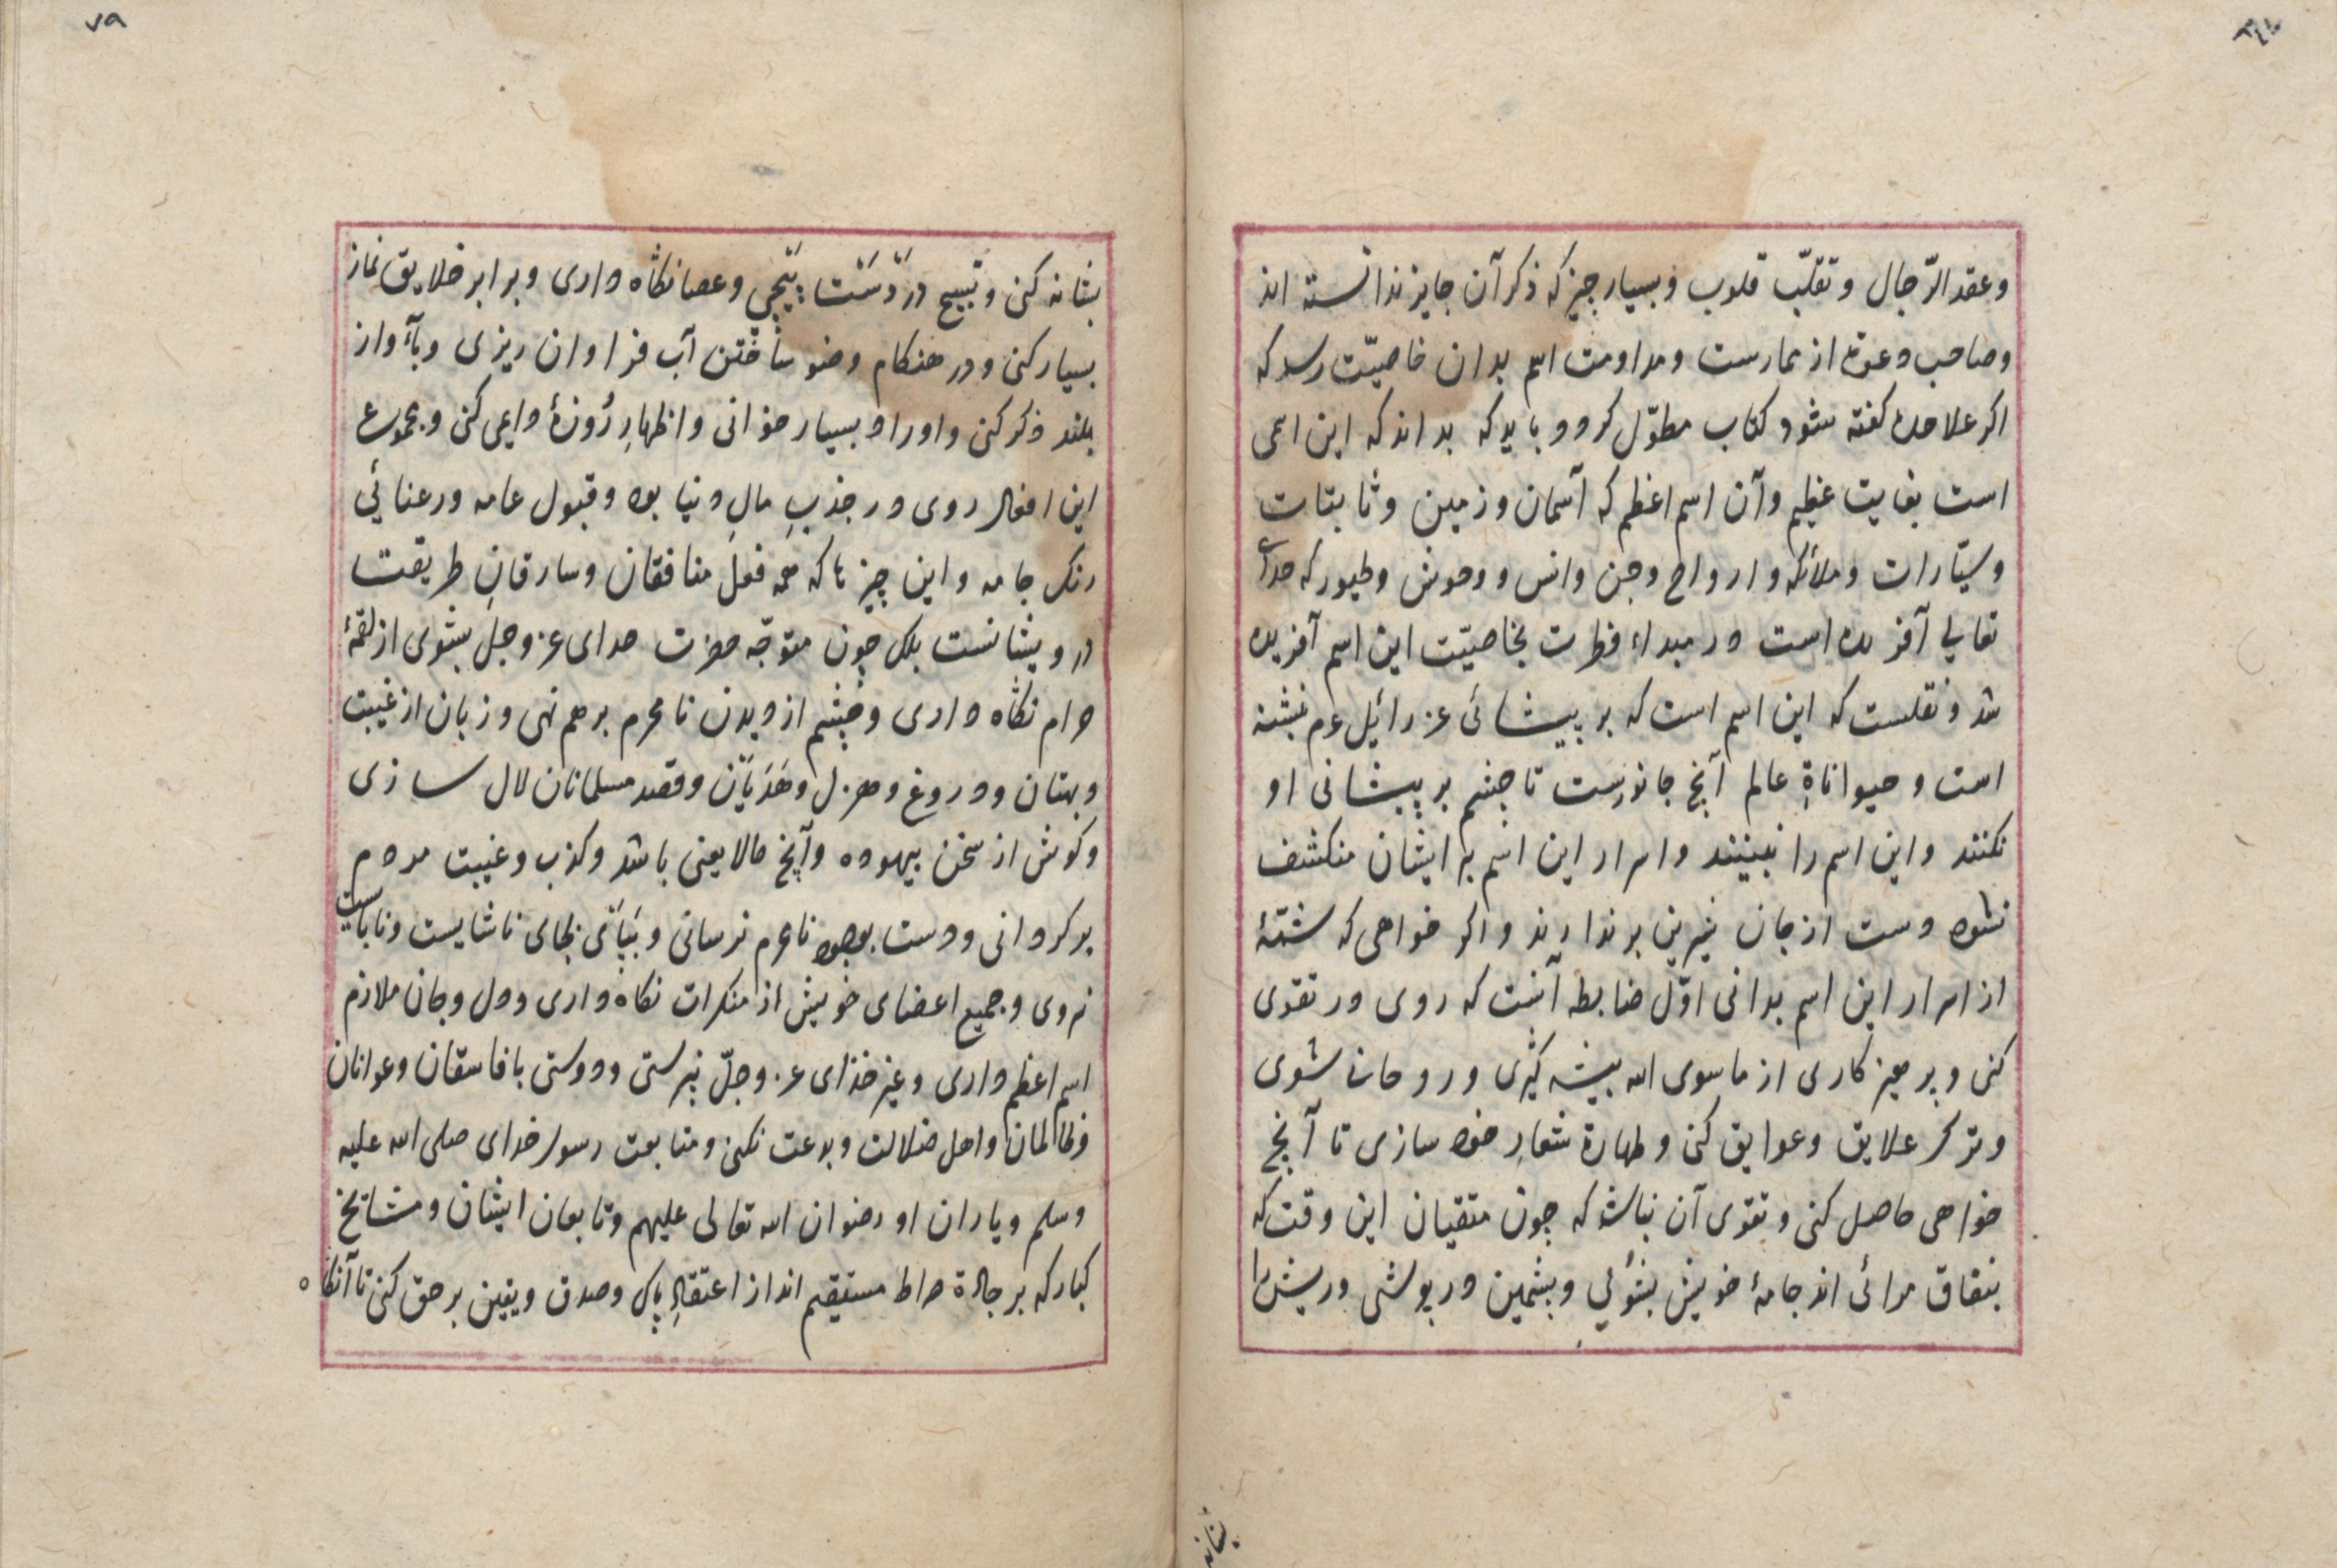 وعقد الرّجال وتقلّب قلوب وبسیار چیز که ذکر آن جایز ندانسته اند
وصاحب دعوت از ممارست ومداومت اسم بدان خاصیّت رسد که
اکر علاحده کفته شود کتاب مطوّل کردد وباید که بداند که این اسمی
است بغایت عظیم وآن اسم اعظم که آسمان وزمین وثابتات
وسیّارات وملائکه وارواح وجن وانس ووحوش وطیور که خدای
تعالی آفریده است در مبداء فطرت بخاصیّت این اسم آفریده
شد ونقلست که این اسم است که بر پیشانئ عزرائیل عم نبشته
است وحیواناةِ عالم آنچ جانورست تا چشم بر پیشانی او
نکنند واین اسم را نبینند واسرار این اسم بر ایشان منکشف
نشود دست از جان شیرین برندارند واکر خواهی که شمّۀ
از اسرار این اسم بدانی اوّل ضابطه آنست که روی در تقوی
کنی وپرهیزکاری از ماسوی الله پیشه کیری وروحانی شوی
وترک علایق وعوایق کنی وطهارة شعارِ خود سازی تا آنچ
خواهی حاصل کنی وتقوی آن نباشد که چون متقیان این وقت که
بنفاق مرائی اند جامۀ خویش بشوئی وپشمین درپوشی وریش را
بشانه
٧٩
بشانه کنی وتسبیح در دَسْت پیچی وعصا نکاه داری وبرابر خلایق نماز
بسیار کنی ودر هنکام وضو ساختن آب فراوان ریزی وبآواز
بلند ذکر کنی واوراد بسیار خوانی واظهارِ رُوزۀ دایمی کنی ومجموع
این افعال روی در جذبِ مالِ دنیا بود وقبول عامه ورعنائی
رنک جامه واین چیزها که همه فعلِ منافقان وسارقانِ طریقت
درویشانست بلک چون متوجّه حضرت خدای عزوجلّ بشوی از لقمۀ
حرام نکاه داری وچشم از دیدن نامحرم برهم نهی وزبان از غیبت
وبهتان ودروغ وهزل وهَذَیَان وقصد مسلمانان لال سازی
وکوش از سخن بیهوده وآنچ مالایعنی باشد وکذب وغیبت مردم
برکردانی ودست بوجود نامحرم نرسانی وبپای بجای ناشایست ونابایست
نروی وجمیع اعضای خویش از منکرات نکاه داری ودل وجان ملازم
اسم اعظم داری وغیر خدای عزوجلّ نپرستی ودوستی با فاسقان وعوانان
وظالمان واهل ضلالت وبدعت نکنی ومتابعت رسول خدای صلی الله علیه
وسلم ویاران او رضوان الله تعالی علیهم وتابعان ایشان ومشایخ
کبار که بر جادۀ صراط مستقیم اند از اعتقادِ پاک وصدق ویقین بر حق کنی تا آنکاه